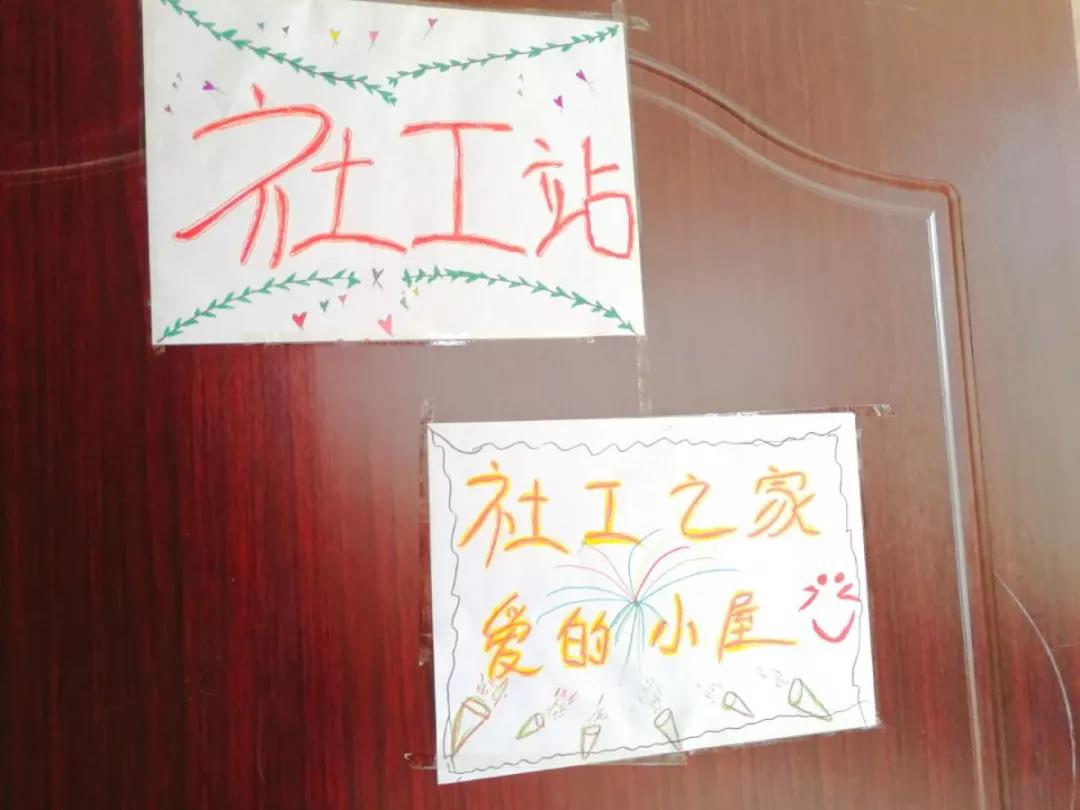 社工站
社工之家
爱的小屋